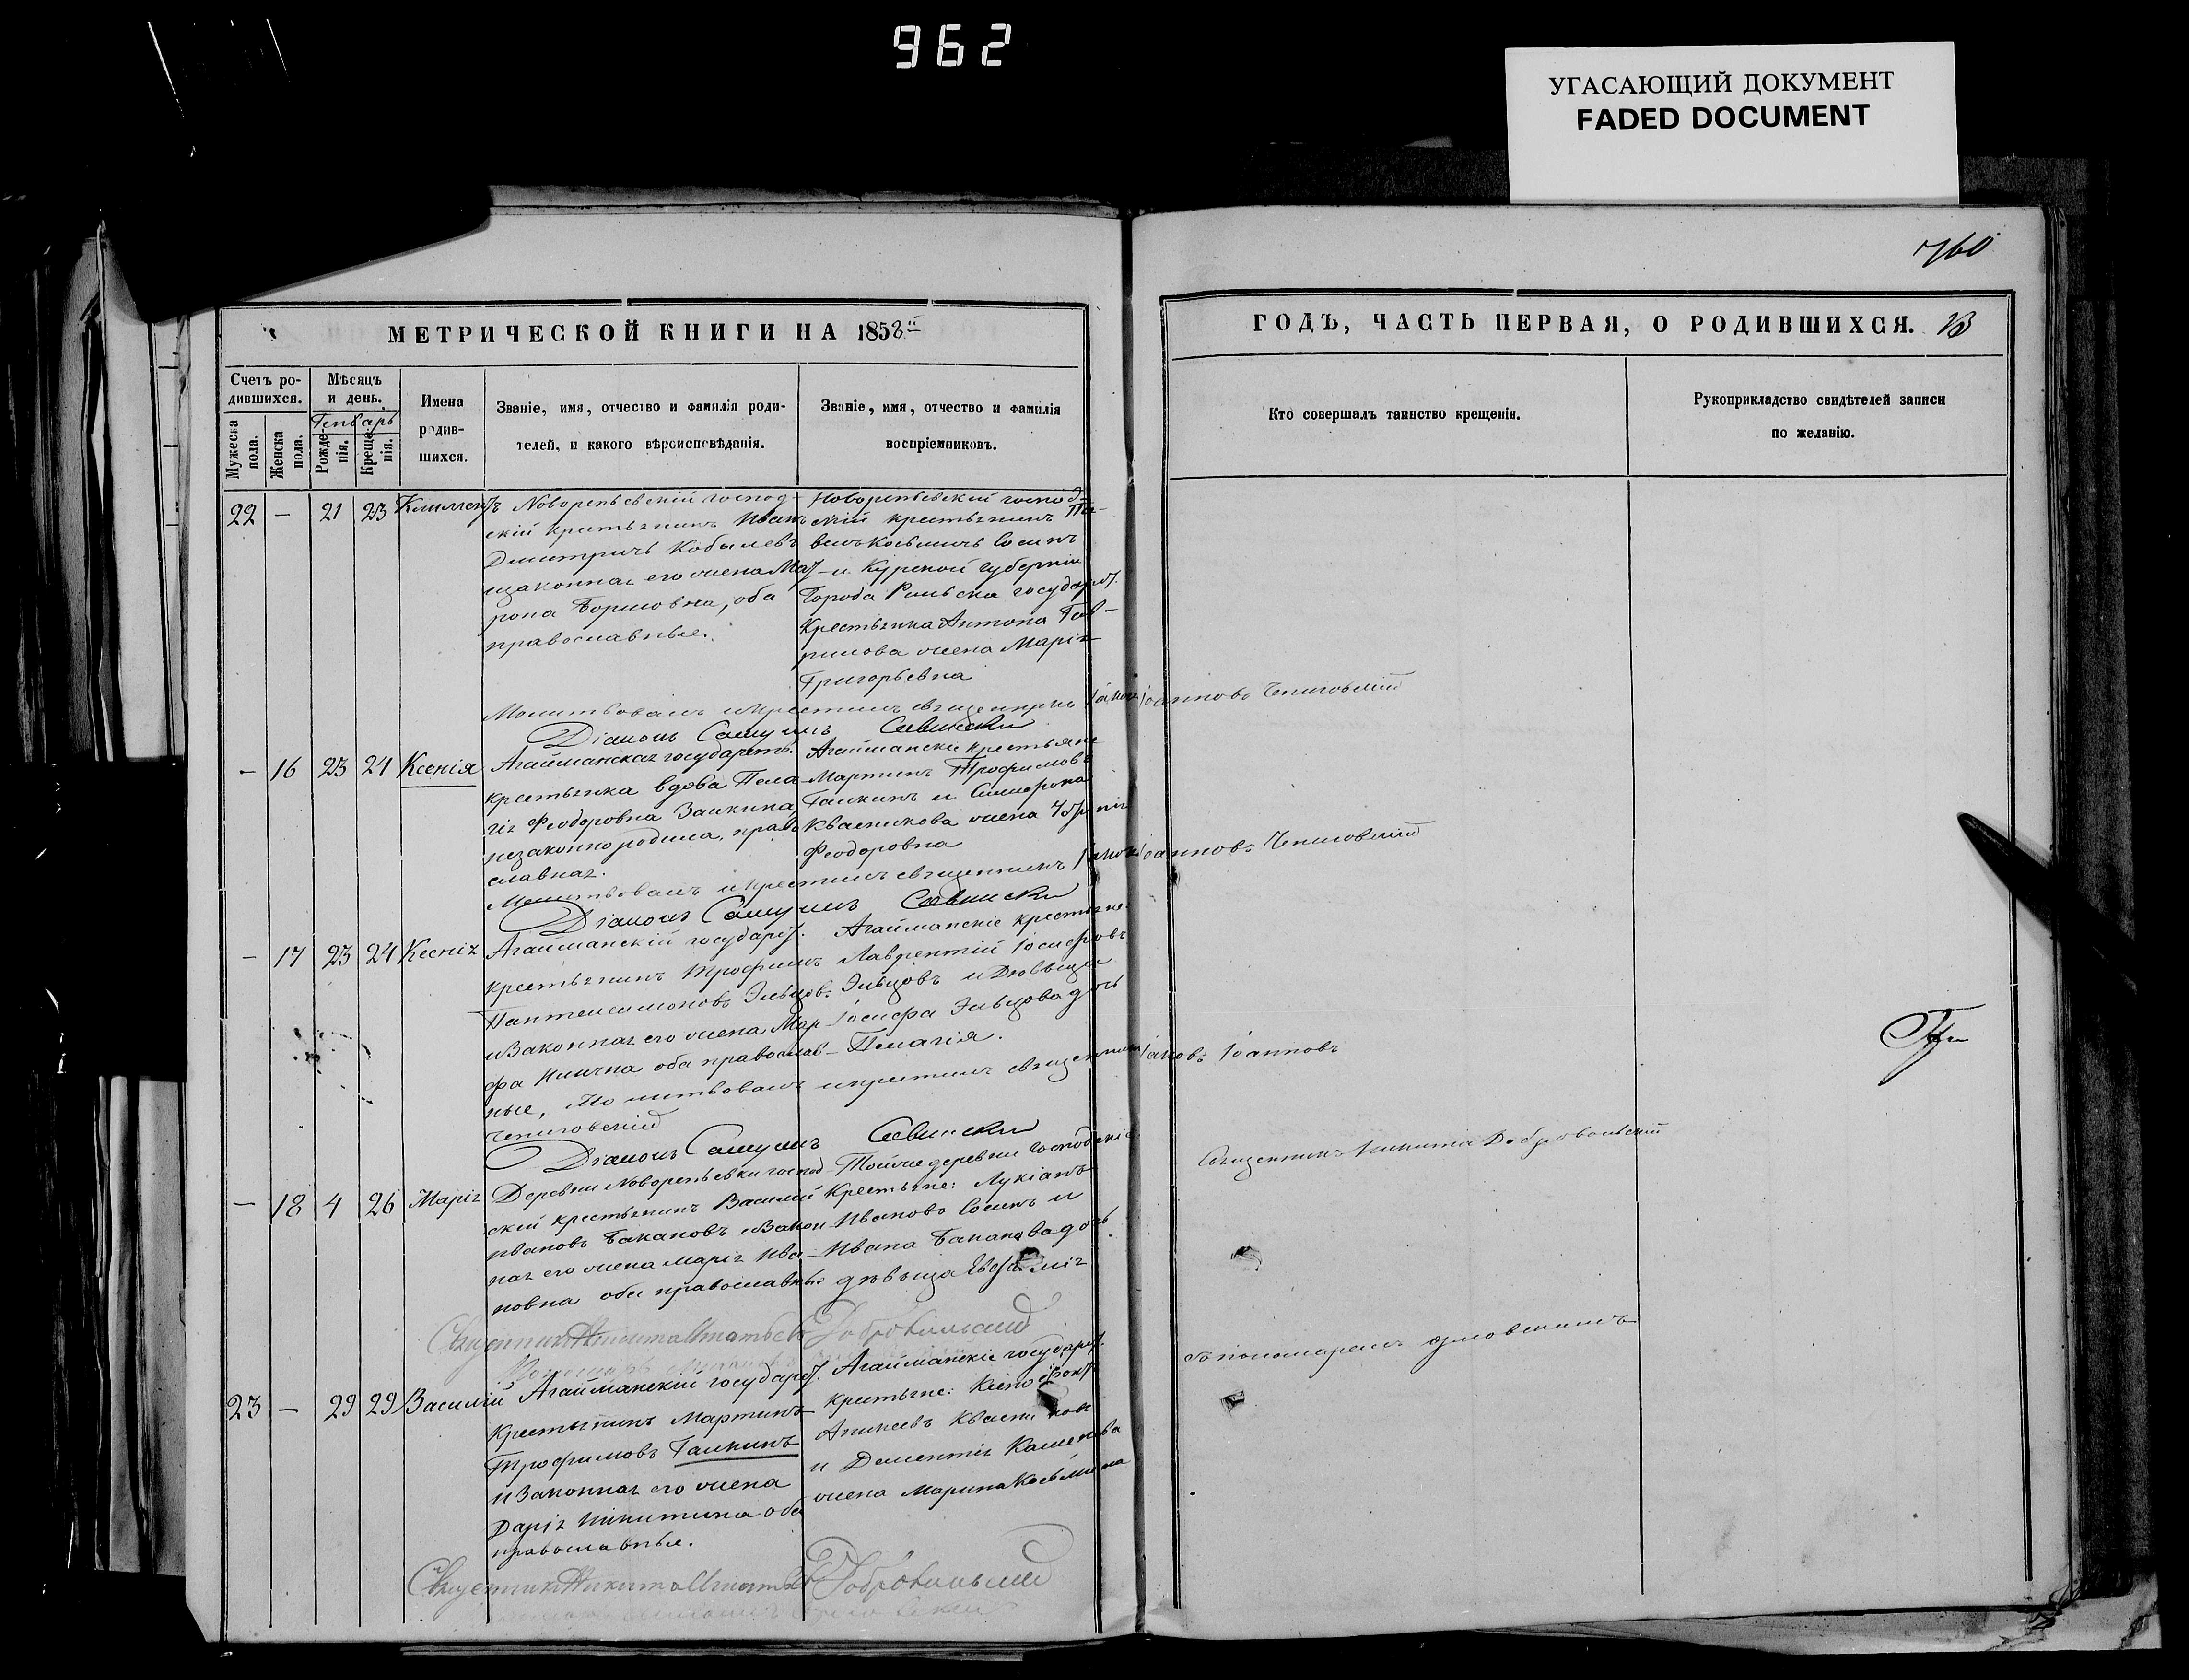 962
УГАСАЮЩИЙ ДОКУМЕНТ
FADED DOCUMENT
760
МЕТРИЧЕСКОЙ КНИГИ НА 1858й
ГОДЪ, ЧАСТЬ ПЕРВАЯ, О РОДИВШИХСЯ.
Счетъ ро-
дившихся.
Мужеска
пола.
Женска
пола.
Мѣсяцъ
и день.
Генварь
Рожде-
нія.
Креще-
нія.
Имена
родив-
шихся.
Званіе, имя, отчество и фамилія роди-
телей, и какого вѣроисповѣданія.
Званіе, имя, отчество и фамилія
воспріемниковъ.
Кто совершалъ таинство крещенія.
Рукоприкладство свидѣтелей записи
по желанію.
22 — 21 23 Климентъ
Новорепьевскій господ-
скій крестьянинъ Иванъ
Дмитричъ Кобылевъ
изаконная его жена Мат
рона Борисовна, оба
православные.
Новорепьевскій господ-
скій крестьянинъ Па-
велъ Косьминъ Сосинъ
и Курской губерніи
Города Рыльска государст.
Крестьянина Антона Гав-
рилова жена Марія
Григорьевна
Молитвовалъ икрестилъ священникъ Іаковъ Іоанновъ
Діаконъ Самуилъ
— 16 23 24 Ксенія
Агайманская государств.
крестьянка вдова Пела-
гія Феодоровна Заикина,
незаконно родила, право
славная.
Агаймански крестьяне
Мартинъ Трофимовъ
Галкинъ и
Квасникова жена
Феодоровна
Молитвовалъ икрестилъ священникъ Іаковъ Іоанновъ
Діаконъ Самуилъ
— 17 23 24 Ксенія
Агайманскій государст.
крестьянинъ Трофимъ
Пантелеимоновъ Эльцовъ
изаконная его жена Мар-
фа Ильична оба православ-
ные,
Агайманскіе крестьяне
Лаврентій Іосифовъ
Эльцовъ и Дѣвица
Іосифа Эльцова дочь
Пелагія.
Молитвовалъ икрестилъ священникъ Іаковъ Іоанновъ
Діаконъ Самуилъ
— 18 4 26 Марія
Деревни Новорепьевки господ-
скій крестьянинъ Василій
Ивановъ Бакановъ изакон-
ная его жена Марія Ива-
новна оба православные
Тойже деревни господскіе
Крестьяне: Лукіанъ
Ивановъ Сосинъ и
Ивана Баканова дочь
дѣвица Евфимія
Священникъ Никита Добровольскій
Священникъ Никита Игнатьевъ Добровольскій
23 — 29 29 Василій
Агайманскій государст.
Крестьянинъ Мартинъ
Трофимовъ Галкинъ
изаконная его жена
Дарія Никитина оба
православные.
Агайманскіе государст.
крестьяне: Ксенофонтъ
Аникеевъ Квасников
и Дементія
жена Марина Косьмина
спономаремъ
Священникъ Никита Игнатьевъ Добровольскій